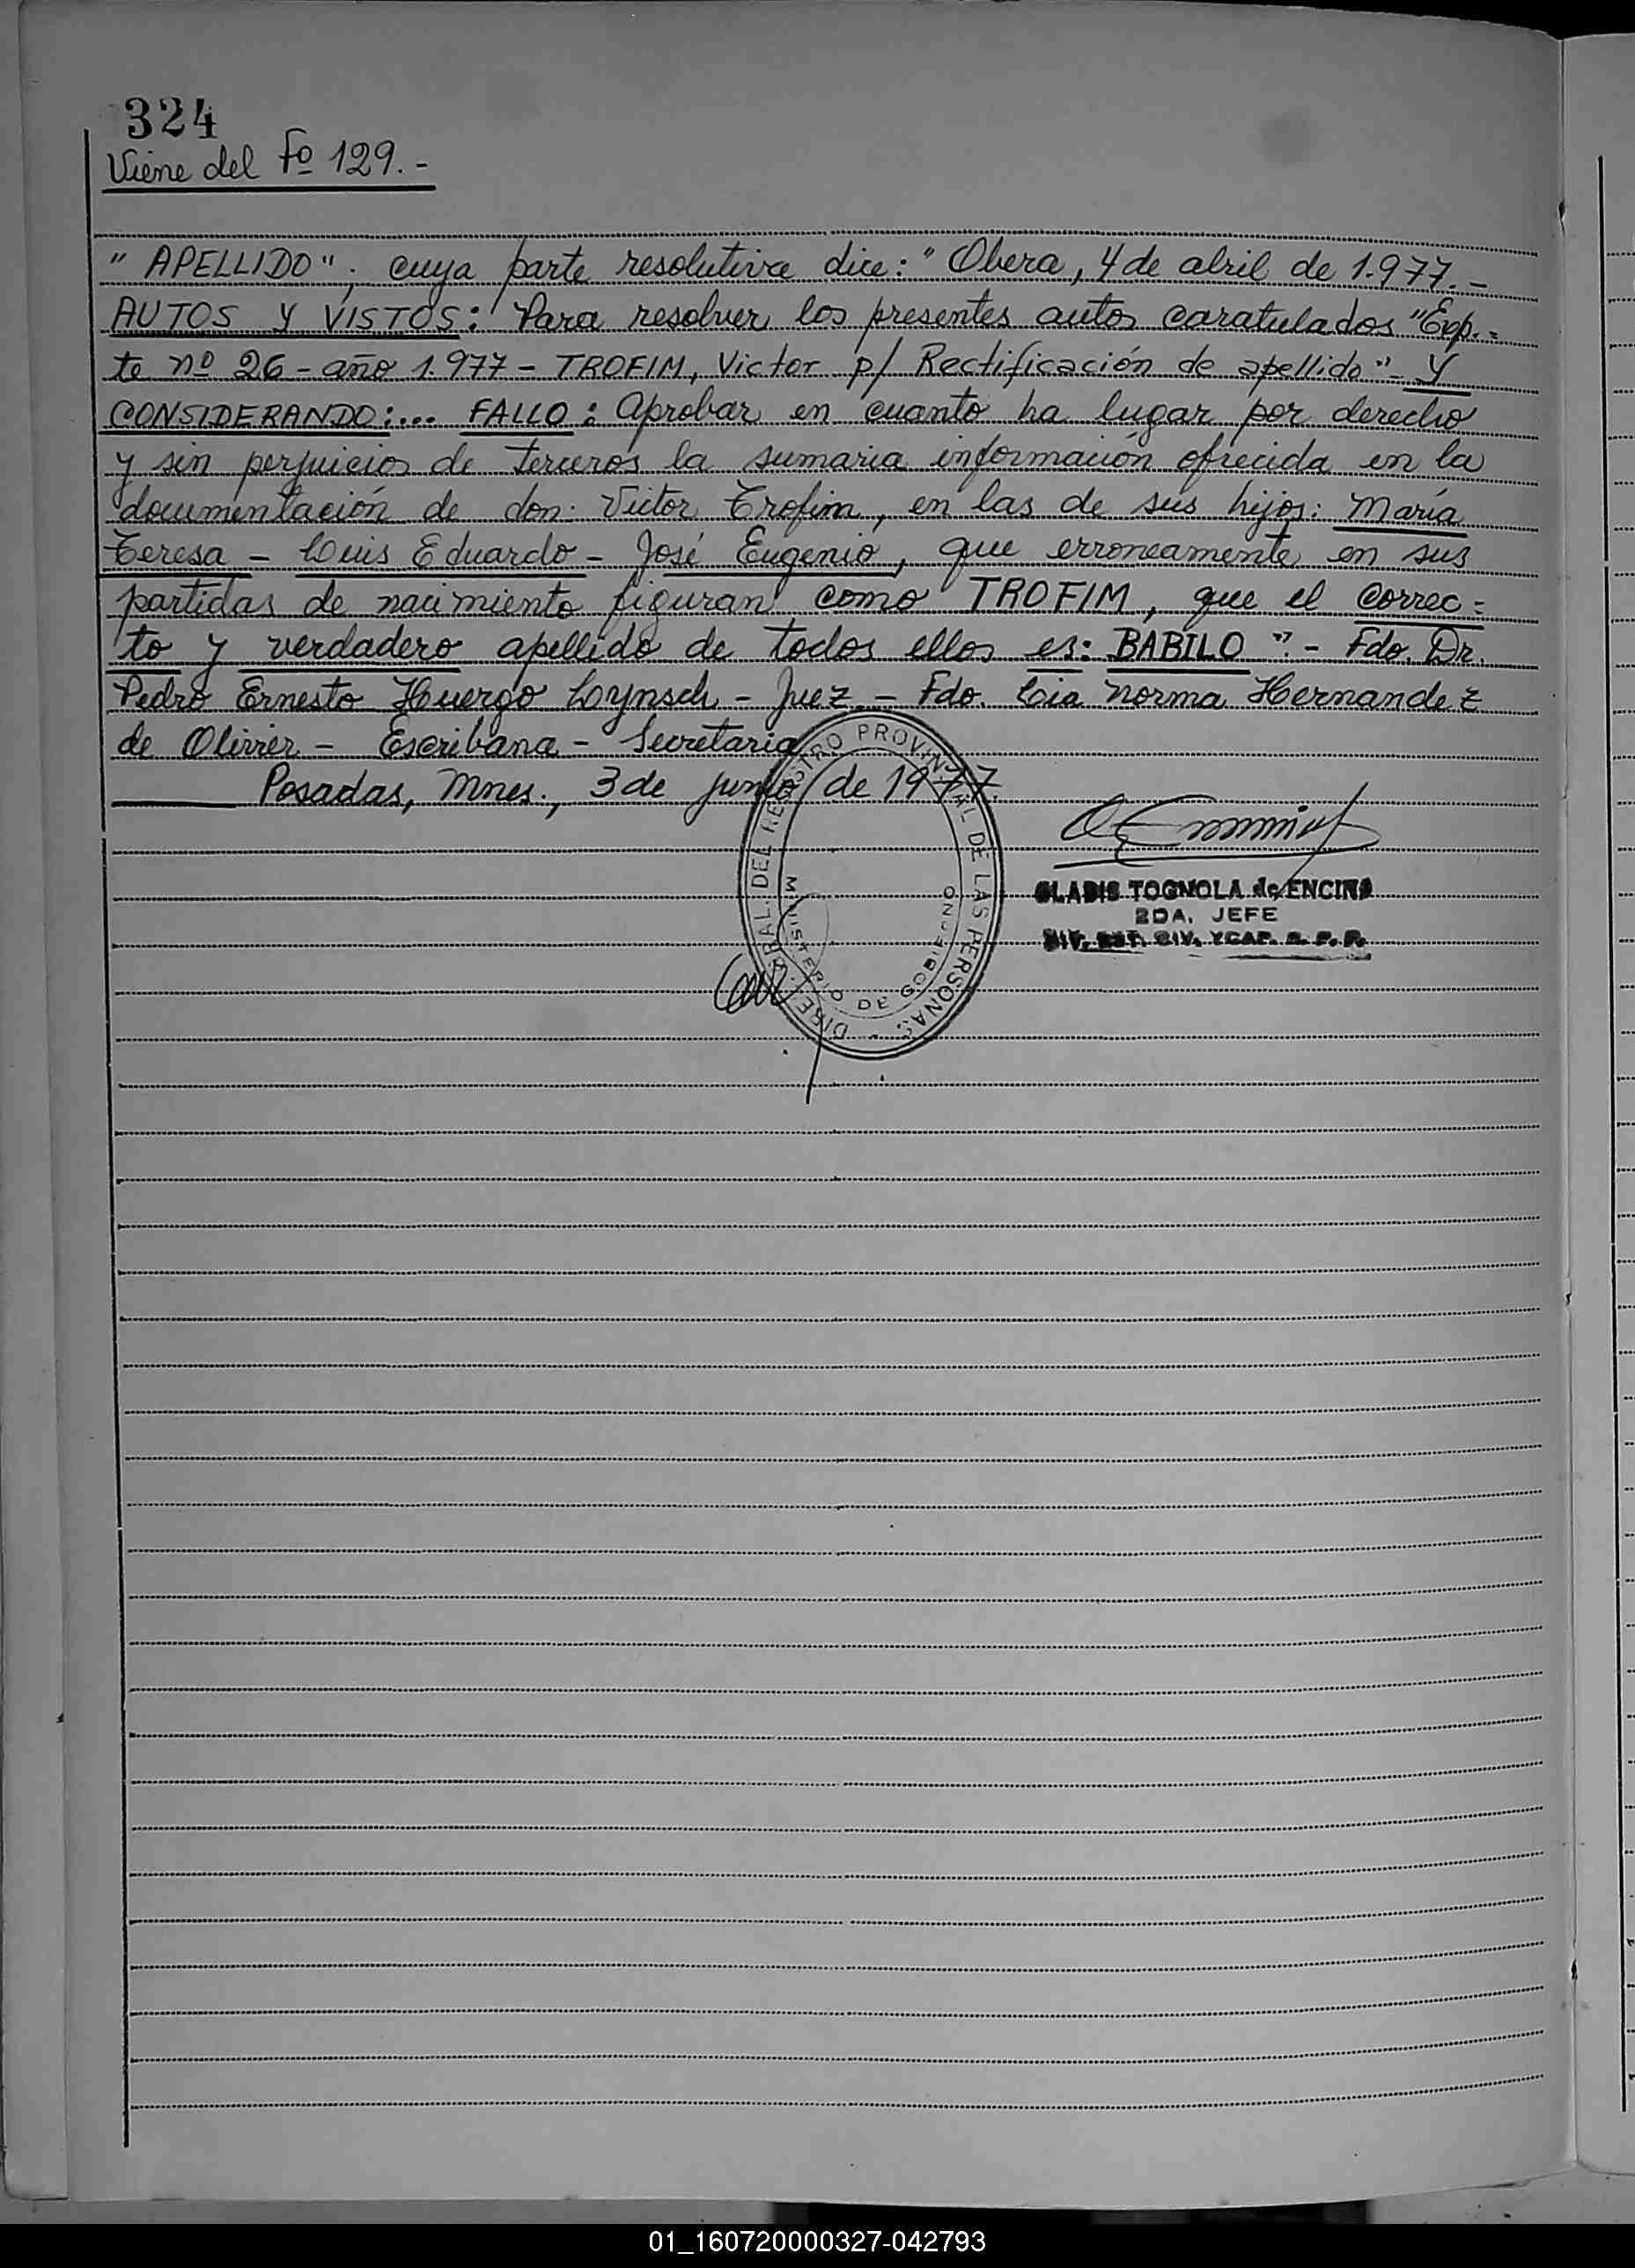 324
Viene del Fº 129.-
"APELLIDO"; cuya parte resolutiva dice: "Obera, 4 de abril de 1.977.-
AUTOS Y VISTOS: Para resolver los presentes autos caratulados "Exp.=
te nº 26 - año 1.977 - TROFIM, Victor p/ Rectificación de apellido" - Y
CONSIDERANDO:... FALLO: Aprobar en cuanto ha lugar por derecho
y sin perjuicios de terceros la sumaria información ofrecida en la
documentación de don: Victor Trofim, en las de sus hijos: María
Teresa - Luis Eduardo - José Eugenio, que erroneamente en sus
partidas de nacimiento figuran como TROFIM, que el correc=
to y verdadero apellido de todos ellos es: BABILO" - Fdo. Dr.
Pedro Ernesto Huergo Lynsch - Juez - Fdo. Lia Norma Hernandez
de Olivier - Escribana - Secretaria
Posadas, Mnes., 3 de junio de 1977.
DIRE. GRAL. DEL REGISTRO PROVINCIAL DE LAS PERSONAS
MINISTERIO DE GOBIERNO
GLADIS TOGNOLA de ENCINA
2DA. JEFE
DIV. EST. CIV. Y CAP. R. P. P.
01_160720000327-042793